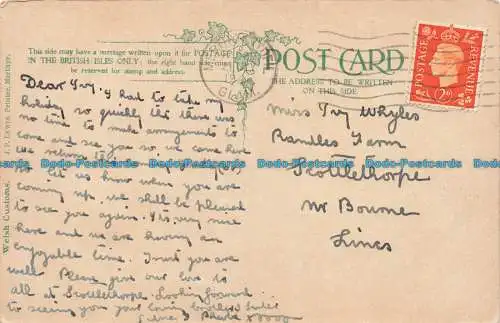 This side may have a message written upon it for POSTAGE
IN THE BRITISH ISLES ONLY; the right hand side must
be reserved for stamp and address.
POST CARD
THE ADDRESS TO BE WRITTEN
ON THIS SIDE
POSTAGE
REVENUE
Glam.
Dear Ivy, I had to take my
holiday so quickly that there was
no time to make arrangements to
come and see you so we came here
let us know when you are
coming up, we shall be pleased
to see you again. It is very nice
here and we are having an
enjoyable time. Trust you are
well. Please give our love to
all at Scottlethorpe. Looking forward
to seeing you your loving
Miss Ivy Whyles
Rambles Farm
Scottlethorpe
Nr Bourne
Lincs
Welsh Customs.
Bocadodo-Postcards.com